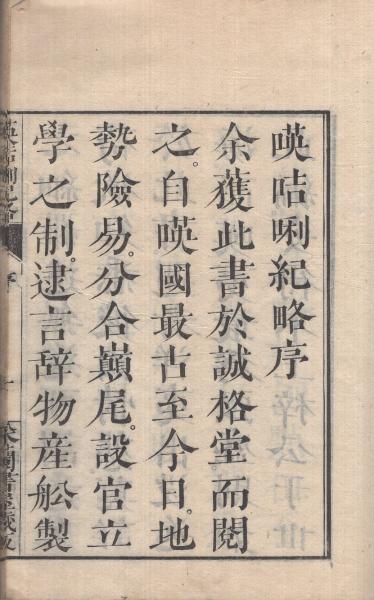 暎咭唎紀略序
余獲此書於誠格堂而閱
之。自暎國最古至今日。地
勢險易。分合巔尾。設官立
學之制。逮言辞物産舩製
序